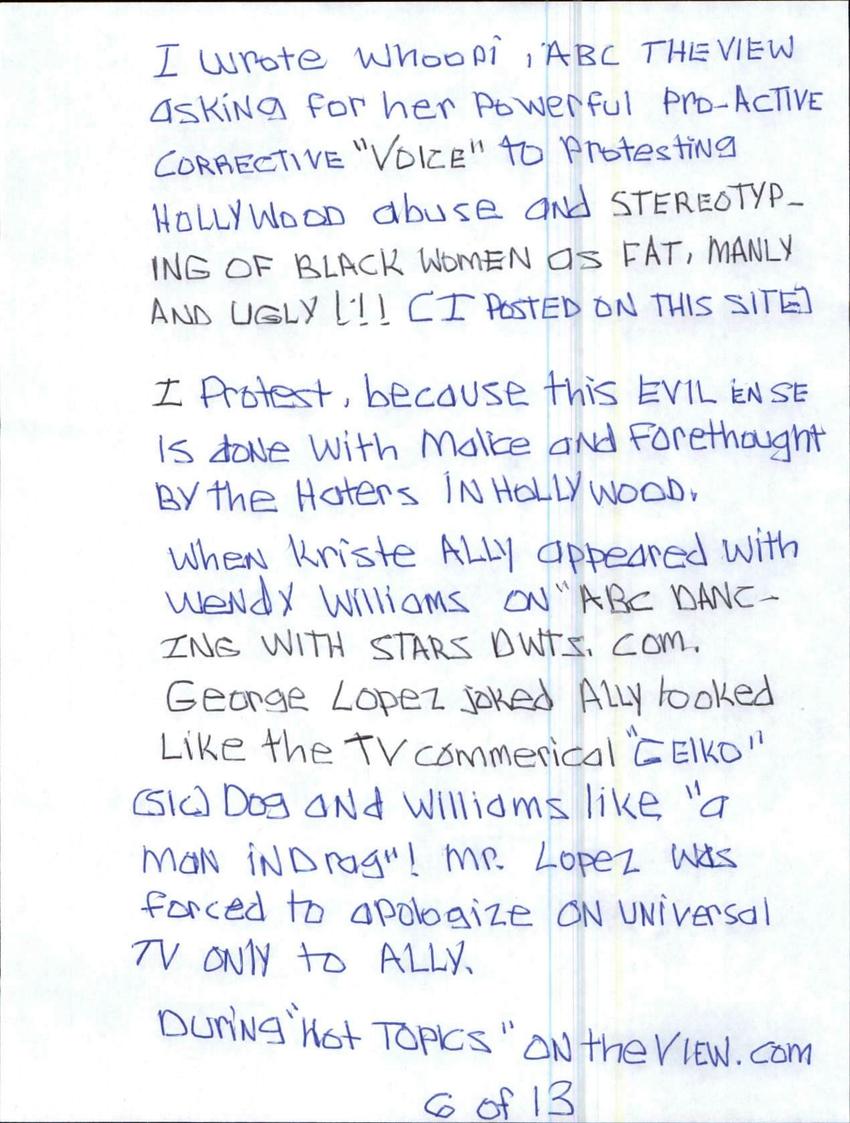 I wrote Whoopi, ABC THE VIEW
asking for her powerful PRO-ACTIVE
CORRECTIVE "VOICE" to Protesting
HOLLYWOOD abuse and STEREOTYP-
ING OF BLACK WOMEN as FAT, MANLY
AND UGLY!!! [I POSTED ON THIS SITE]
I Protest, because this EVIL ENSE
IS done With Malice and Forethought
BY the Haters IN HOLLYWOOD.
When Kriste ALLY appeared with
Wendy Williams ON "ABC DANC-
ING WITH STARS DWTS. COM.
George Lopez joked ALLY looked
Like the TV commerical "GEIKO"
(SIC) Dog and Williams like "a
man in Drag"! Mr. Lopez was
forced to apologize ON UNiversal
TV ONLY to ALLY.
DURING "Hot TOPICS" ON the VIEW. com
6 of 13